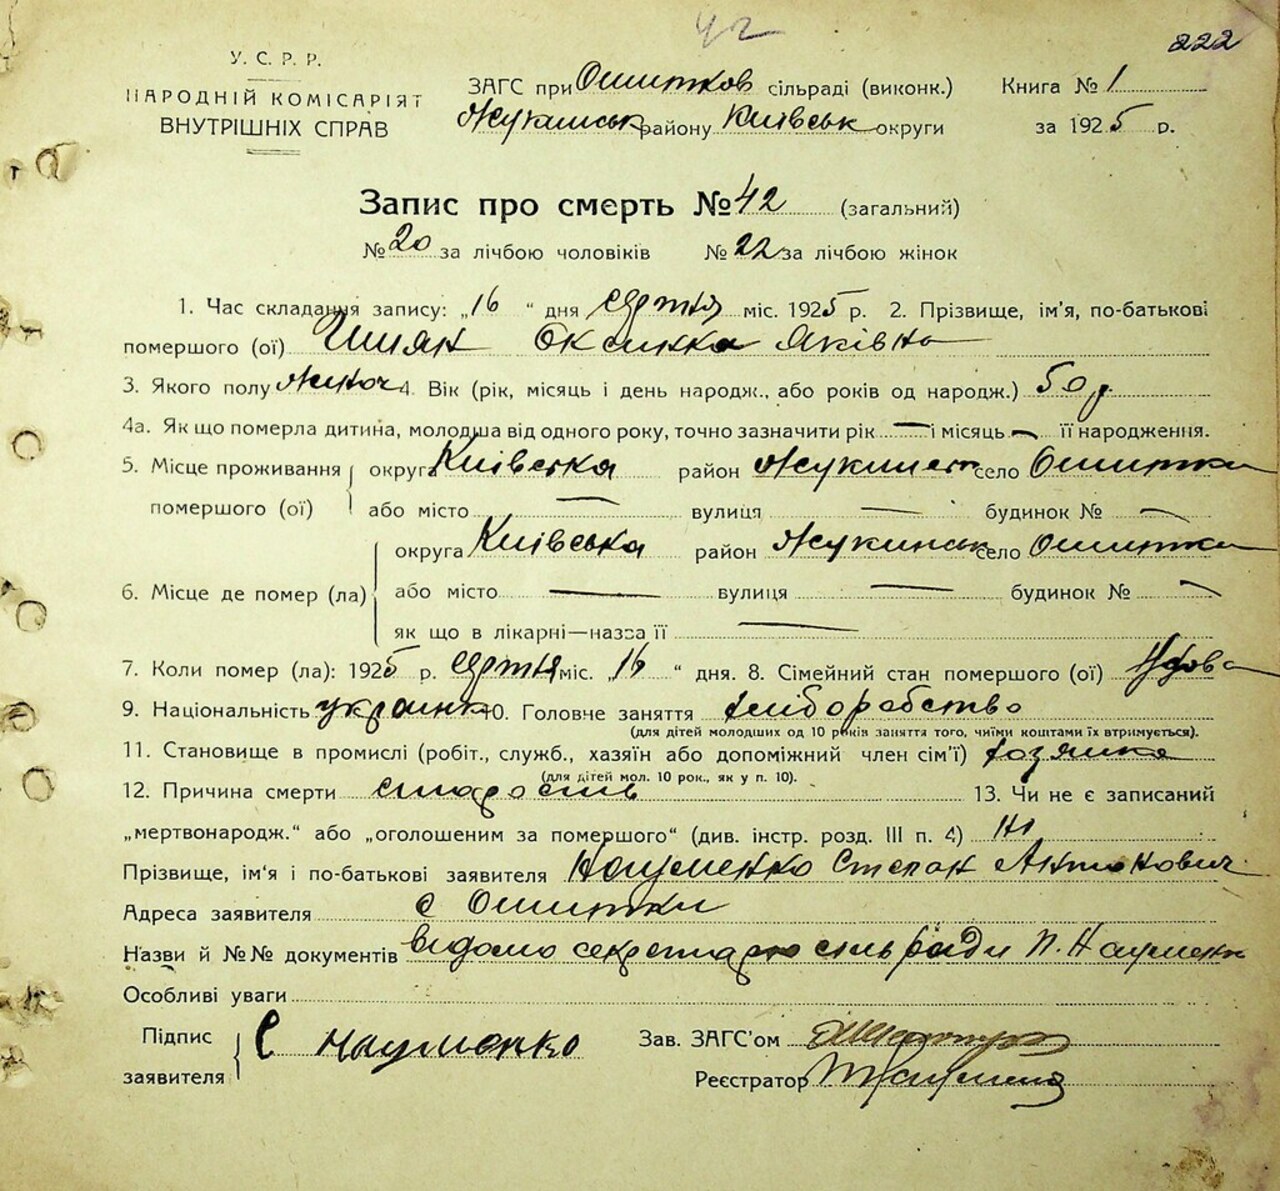 42
222
У. С. Р. Р.
НАРОДНІЙ КОМІСАРІЯТ
ВНУТРІШНІХ СПРАВ
ЗАГС при Ошитков сільраді (виконк.)
Жукинськ району Київськ округи
Книга № 1
за 1925 р.
Запис про смерть № 42 (загальний)
№ 20 за лічбою чоловіків № 22 за лічбою жінок
1. Час складання запису: „16 “ дня серпня міс. 1925 р. 2. Прізвище, ім'я, по-батькові
помершого (ої) Шпяк Оксинка Яківна
3. Якого полу жіноч 4. Вік (рік, місяць і день народж., або років од народж.) 50 р
4а. Як що померла дитина, молодша від одного року, точно зазначити рік — і місяць — її народження.
5. Місце проживання округа Київська район Жукинськ село Ошитки
помершого (ої) або місто — вулиця — будинок № —
округа Київська район Жукинськ село Ошитки
6. Місце де помер (ла) або місто — вулиця — будинок № —
як що в лікарні—назва її —
7. Коли помер (ла): 1925 р. серпня міс. „16 “ дня. 8. Сімейний стан помершого (ої) Удова
9. Національність українка 10. Головне заняття хліборобство
(для дітей молодших од 10 років заняття того, чиїми коштами їх втримується).
11. Становище в промислі (робіт., служб., хазяїн або допоміжний член сім'ї) хозяйка
(для дітей мол. 10 рок., як у п. 10).
12. Причина смерти старость 13. Чи не є записаний
„мертвонародж.“ або „оголошеним за помершого“ (див. інстр. розд. III п. 4) ні
Прізвище, ім'я і по-батькові заявителя Науменко Степан Антонович
Адреса заявителя с Ошитки
Назви й №№ документів відомо секретарю сільради П. Науменк
Особливі уваги
Підпис
заявителя С Науменко
Зав. ЗАГС'ом
Реєстратор П Науменко